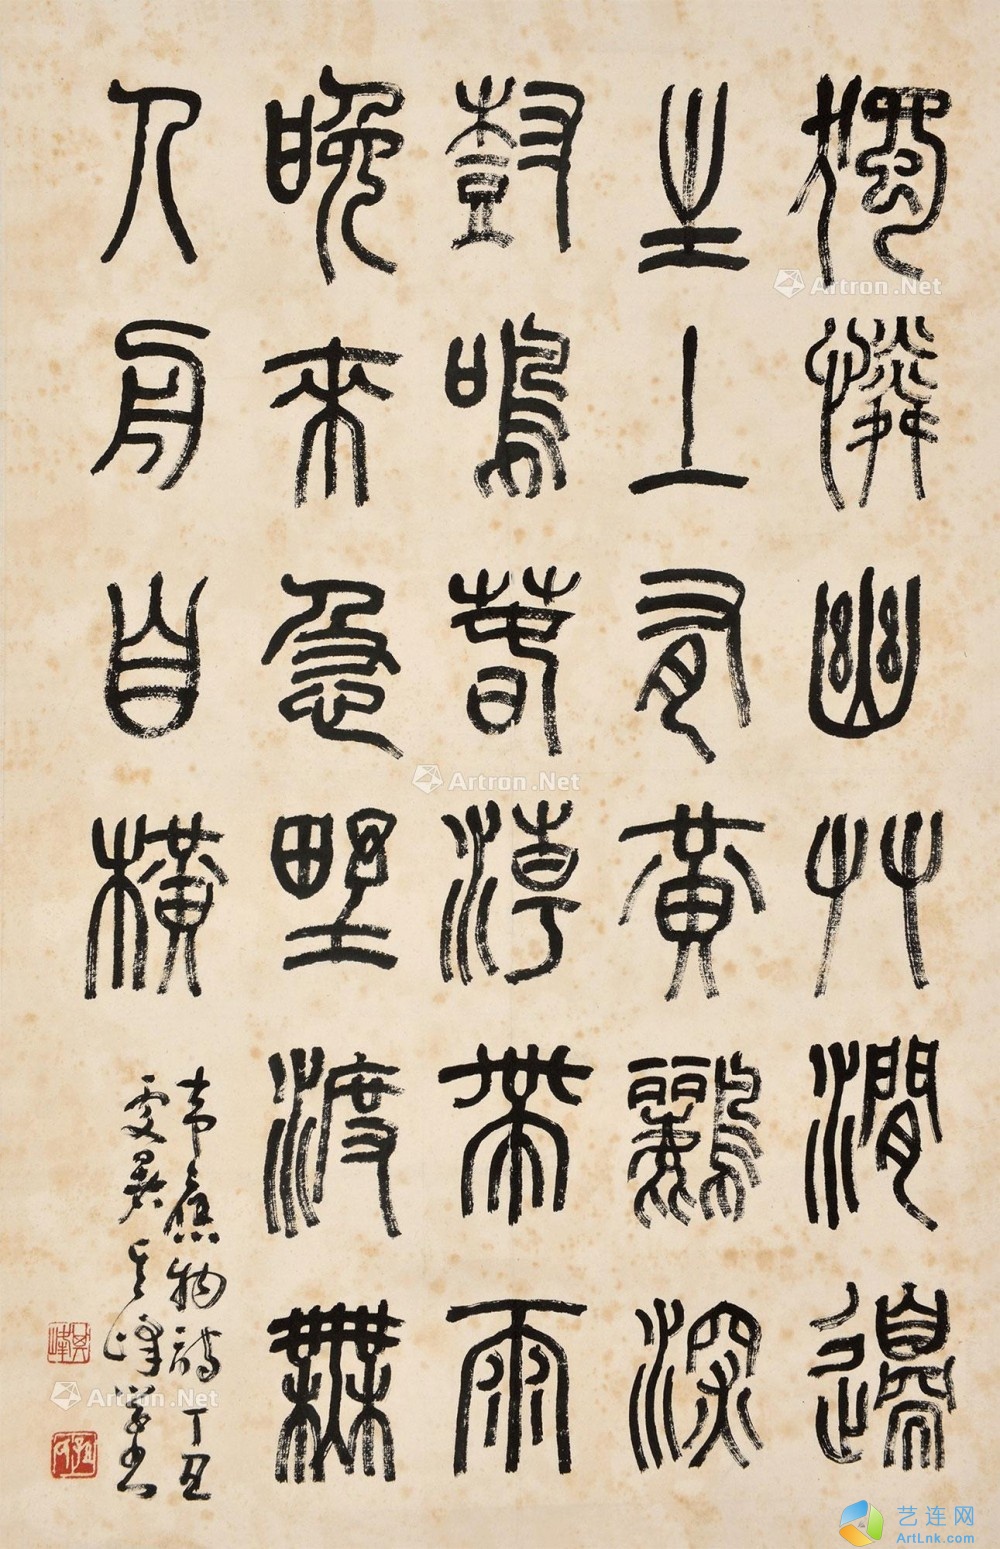 獨憐幽艸澗邊
生上有黃鸝深
樹鳴春潮帶雨
晚來急野渡無
人舟自橫
韋應物詩 丁丑
其峰
其峰
Artron.Net
Artron.Net
Artron.Net
艺连网
ArtLnk.com